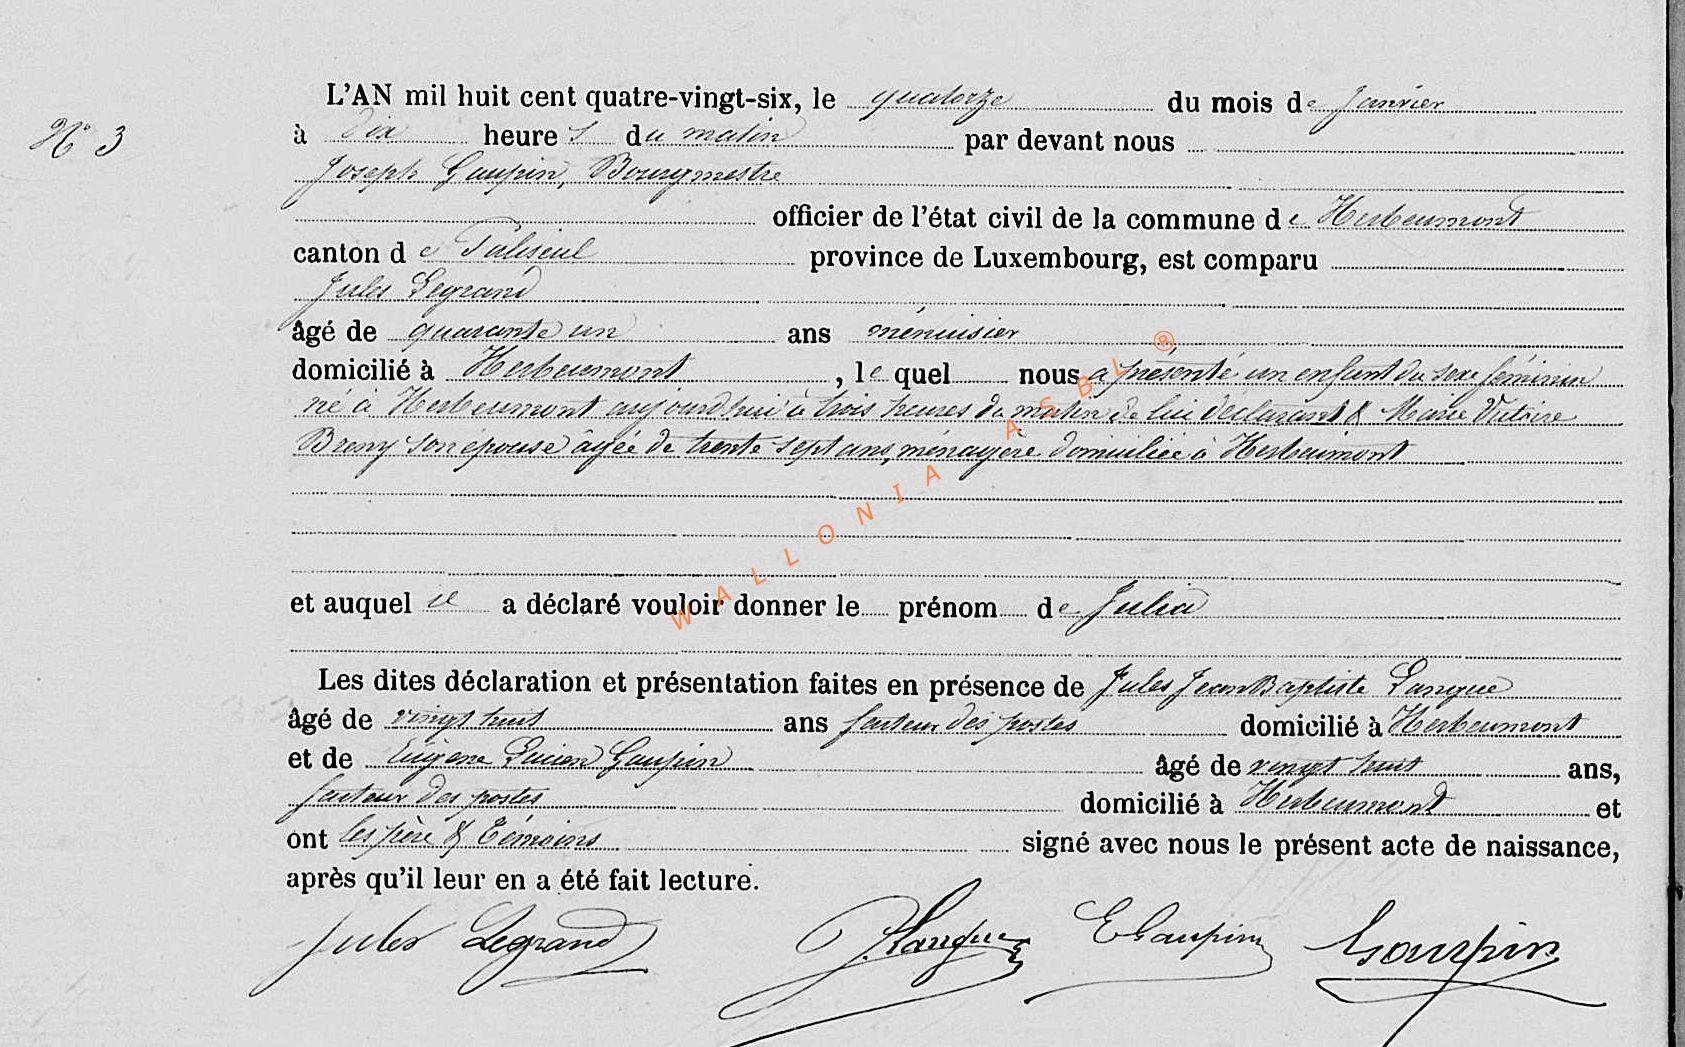 N° 3
L'AN mil huit cent quatre-vingt-six, le quatorze du mois de Janvier
à dix heures du matin par devant nous
Joseph Gaupin, Bourgmestre
officier de l'état civil de la commune de Herbeumont
canton de Paliseul province de Luxembourg, est comparu
Jules Legrand
âgé de quarante un ans ménuisier
domicilié à Herbeumont, le quel nous a présenté un enfant du sexe féminin
né à Herbeumont aujourd'hui à trois heures du matin de lui déclarant & Marie Victoire
son épouse âgée de trente sept ans, ménagère domiciliée à Herbeumont
et auquel il a déclaré vouloir donner le prénom de Julia
Les dites déclaration et présentation faites en présence de Jules Jean Baptiste Langue
âgé de vingt huit ans facteur des postes domicilié à Herbeumont
et de Eugène Lucien Gaupin âgé de vingt huit ans,
facteur des postes domicilié à Herbeumont et
ont les père & témoins signé avec nous le présent acte de naissance,
après qu'il leur en a été fait lecture.
Jules Legrand J. Langue E Gaupin Gaupin
WALLONIA ASBL ®